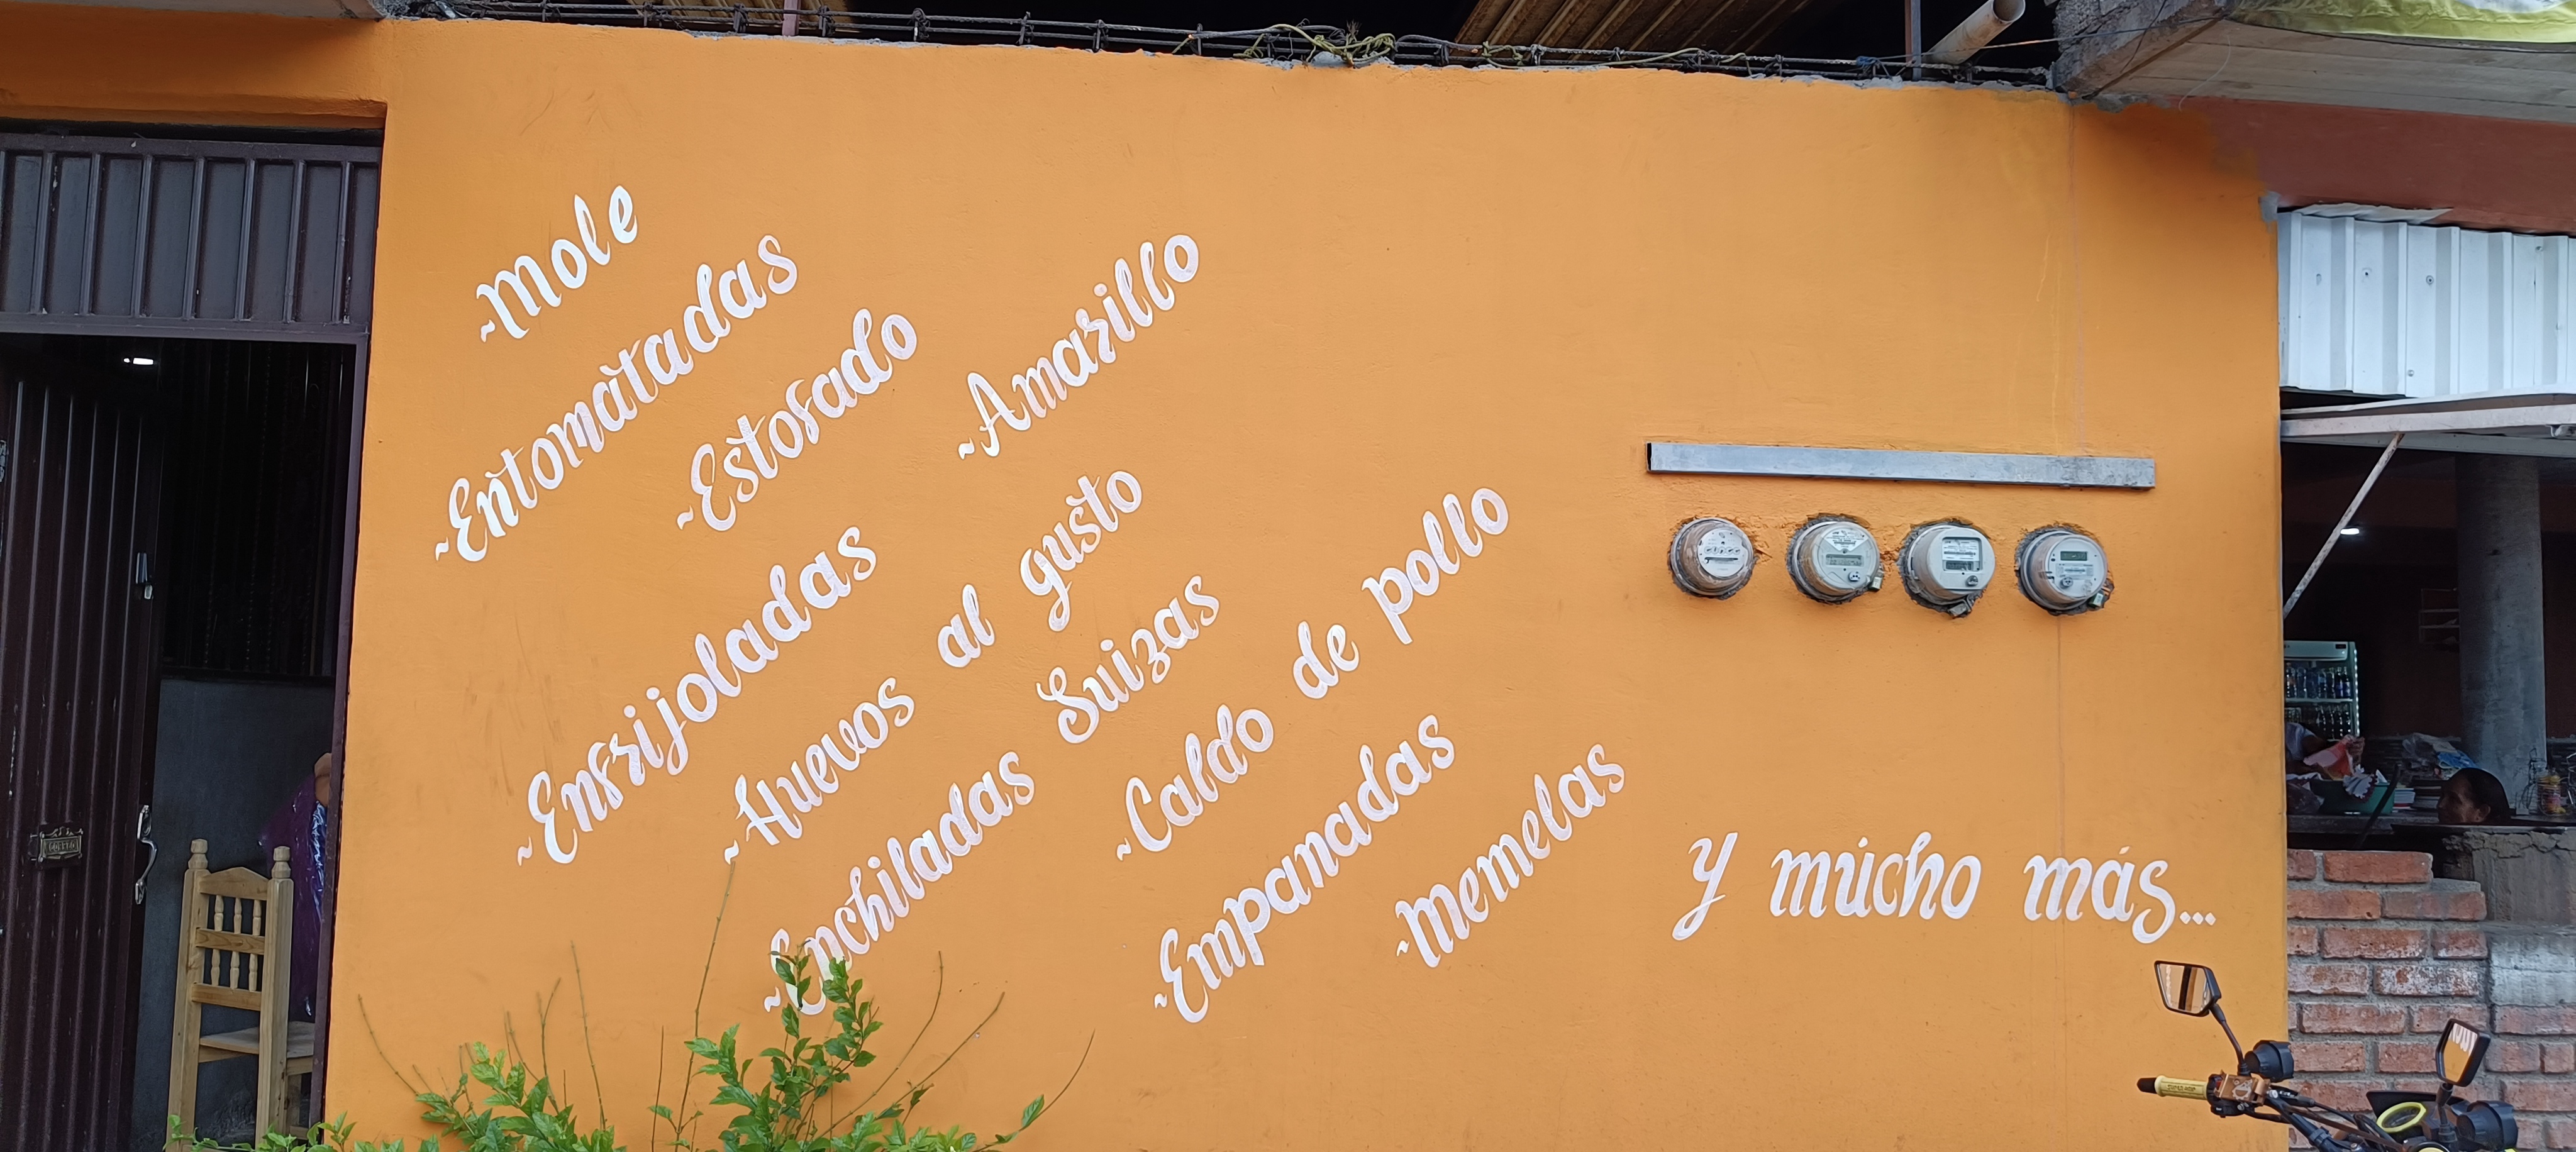 ~Mole
~Entomatadas
~Estofado
~Amarillo
~Enfrijoladas
~Huevos al gusto
~Enchiladas Suizas
~Caldo de pollo
~Empanadas
~Memelas
y mucho más...